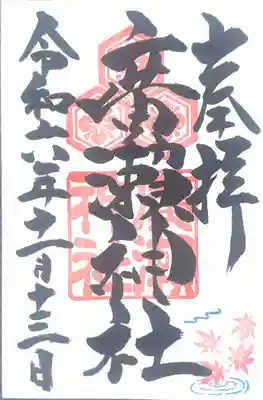 奉拝
廣瀬神社
令和六年十一月十三日